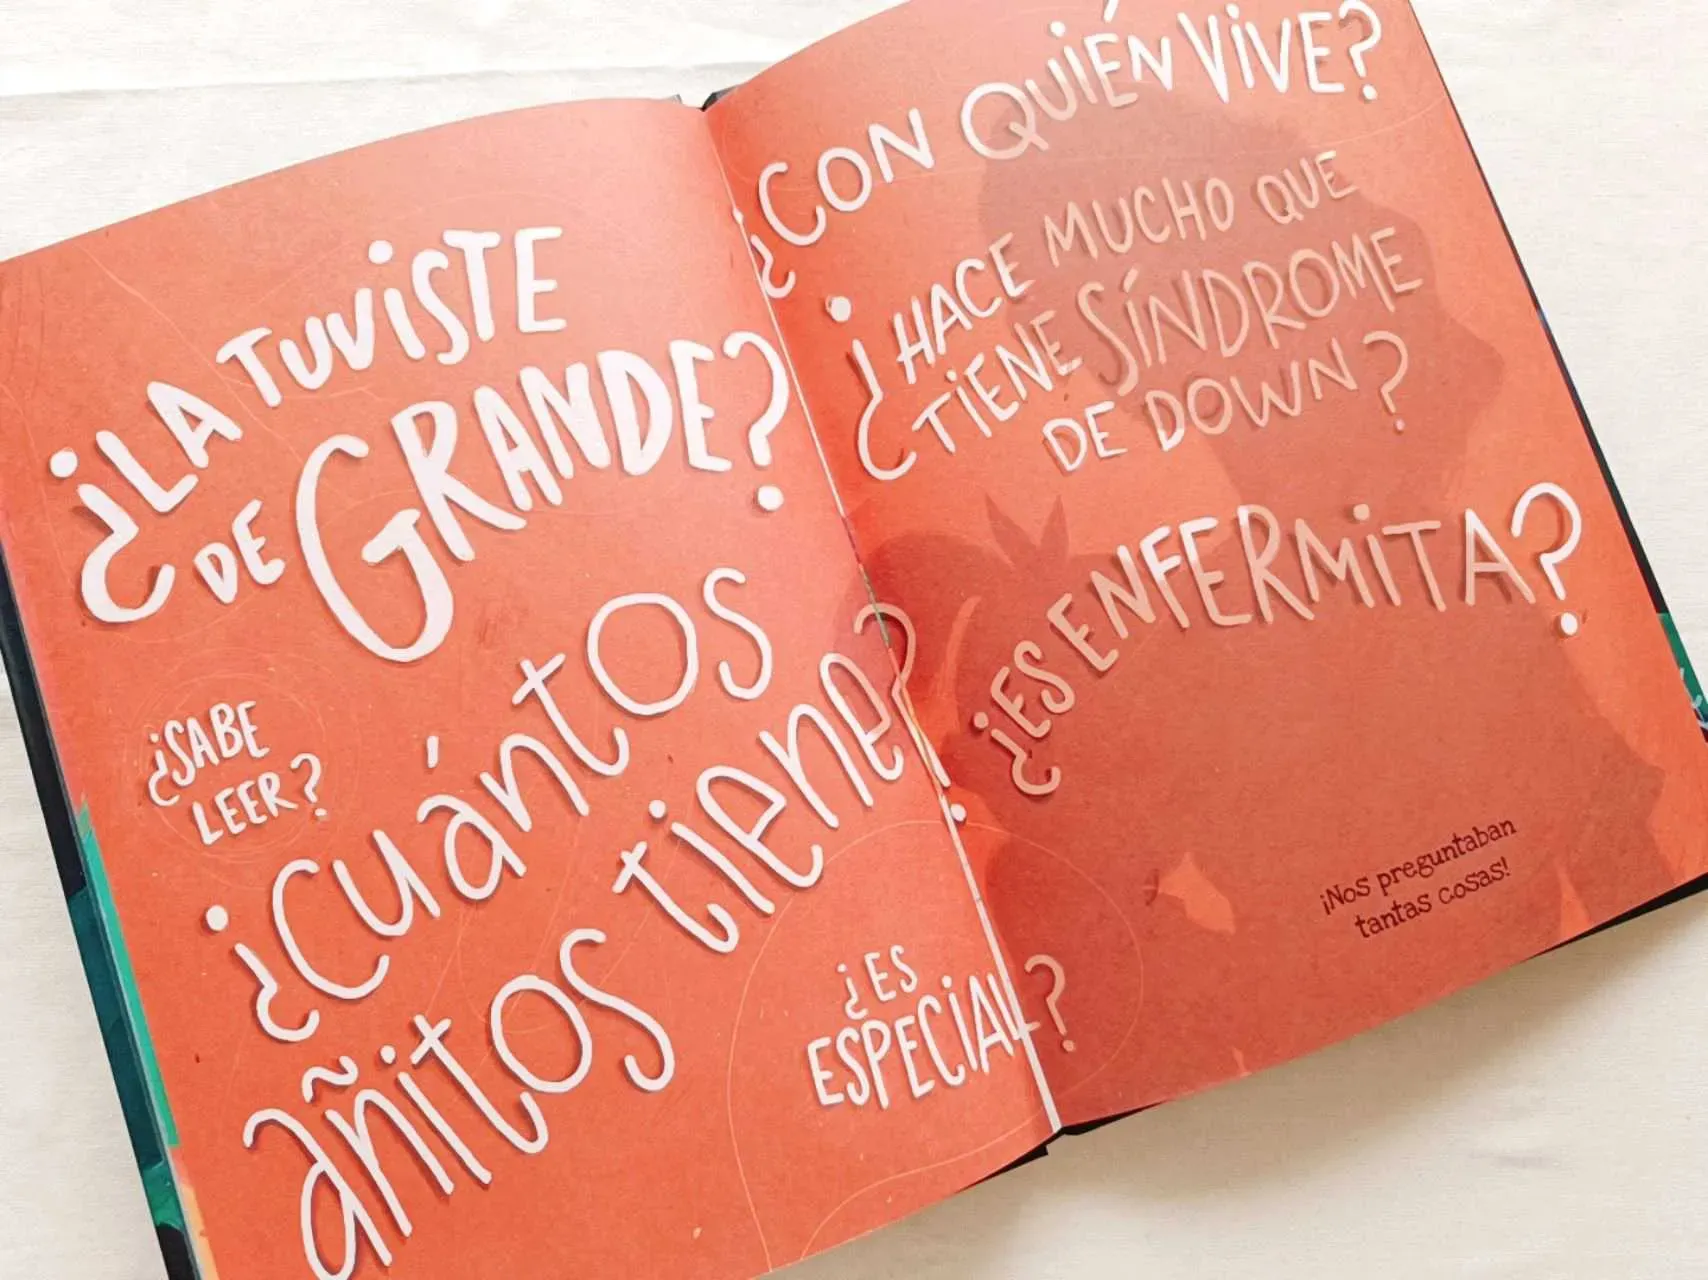 ¿LA TUViSTE
DE GRANDE?
¿SABE
LEER?
¿Cuántos
añitos tiene?
¿ES
ESPECiAL?
¿CON QUiÉN ViVE?
¿HACE MUCHO QUE
TiENE SÍNDROME
DE DOWN?
¿ES ENFERMiTA?
¡Nos preguntaban
tantas cosas!